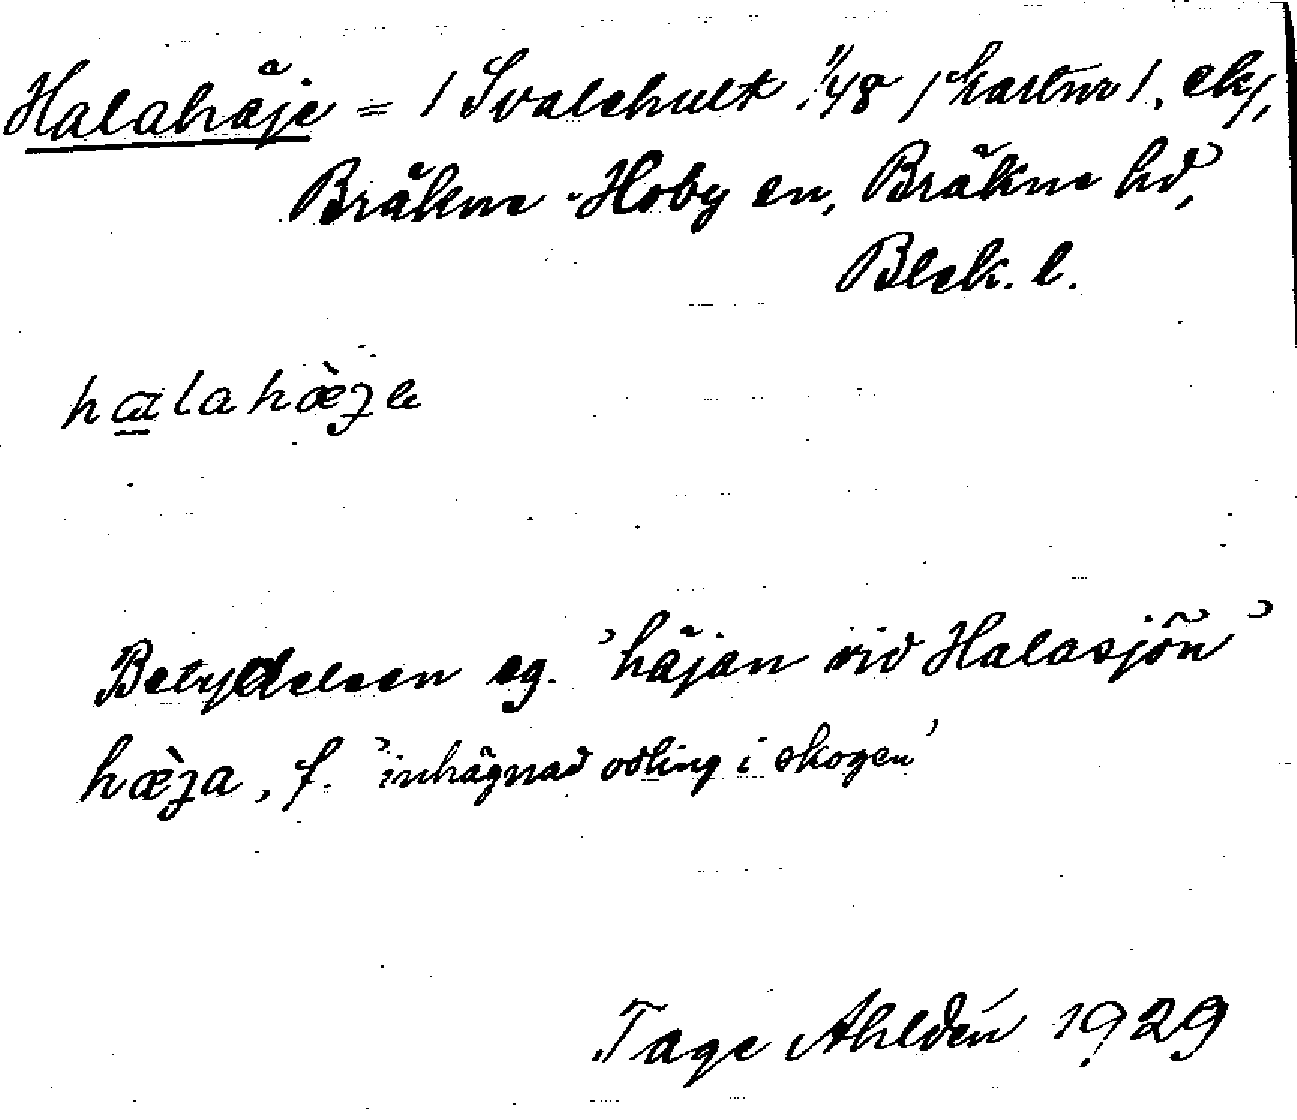 Halahäje = / Svalehult 1/48 / kartnr 1. ek/,
Bräkne-Hoby sn, Bräkne hd,
Blek. l.
hɑlahæ̀ʒe
Betydelsen eg. 'häjan vid Halasjön'
hæ̀ʒa, f. 'inhägnad odling i skogen'
Tage Ahldén 1929